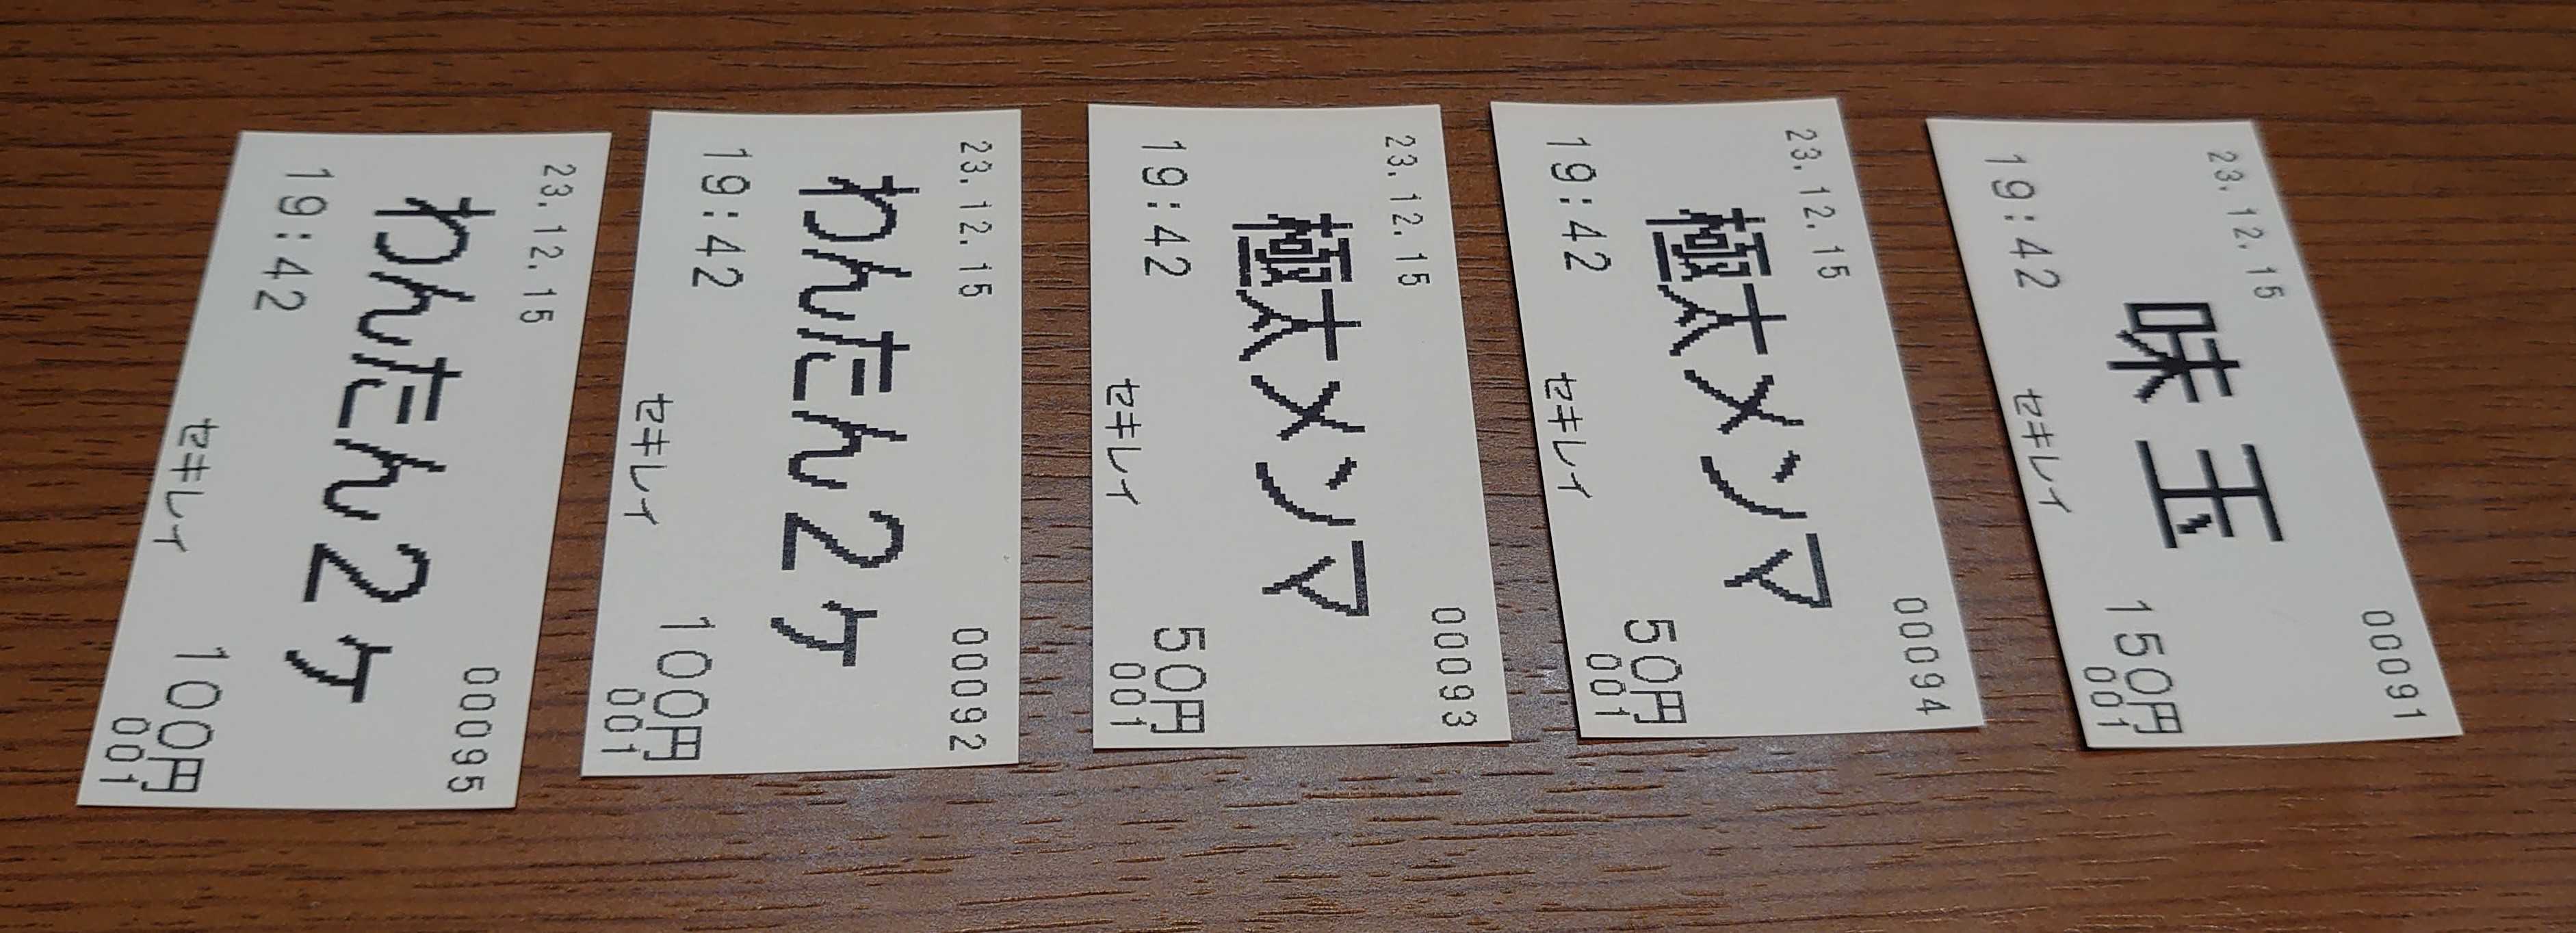 23.12.15 00091
味玉
19:42 150円
セキレイ 001
23.12.15 00094
極太メンマ
19:42 50円
セキレイ 001
23.12.15 00093
極太メンマ
19:42 50円
セキレイ 001
23.12.15 00092
わんたん2ケ
19:42 100円
セキレイ 001
23.12.15 00095
わんたん2ケ
19:42 100円
セキレイ 001